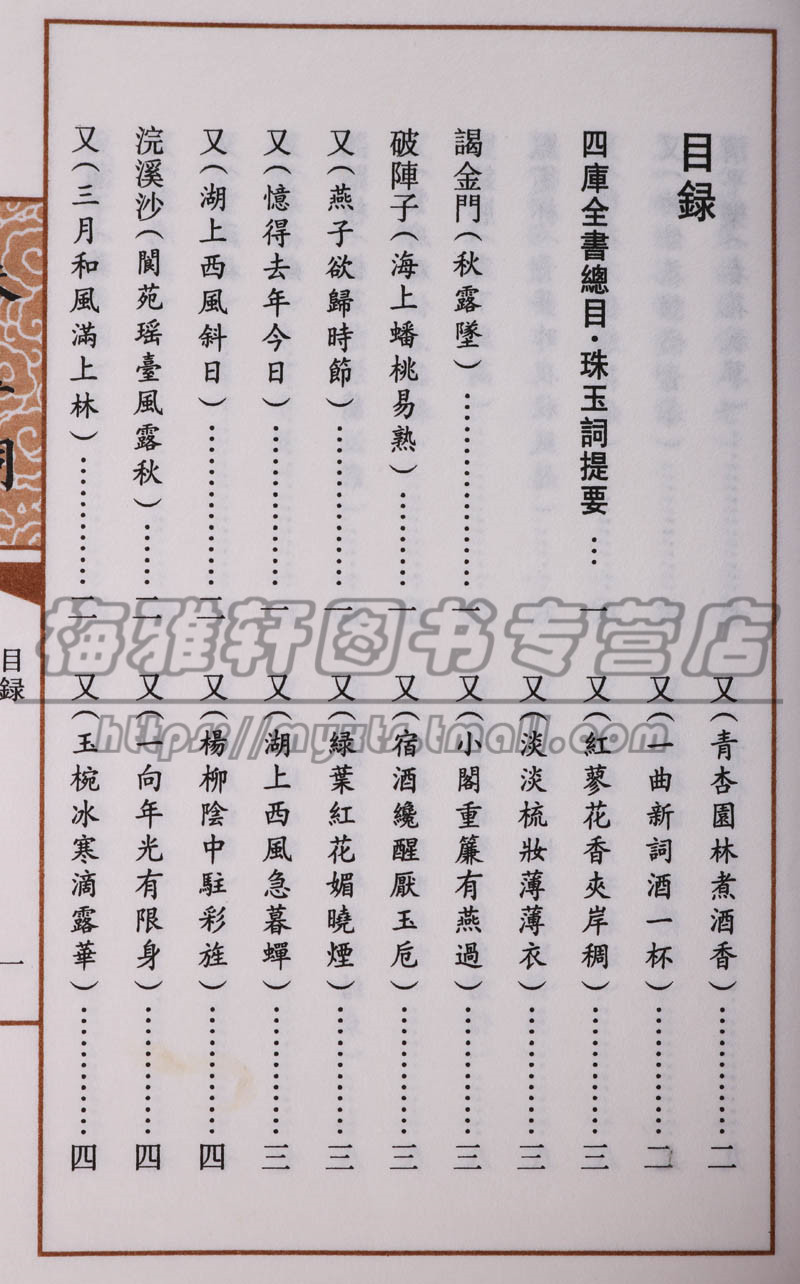 目録
四庫全書總目·珠玉詞提要…一
謁金門（秋露墜）……一
破陣子（海上蟠桃易熟）……一
又（燕子欲歸時節）……一
又（憶得去年今日）……一
又（湖上西風斜日）……二
浣溪沙（閬苑瑶臺風露秋）……二
又（三月和風滿上林）……二
又（青杏園林煮酒香）……二
又（一曲新詞酒一杯）……二
又（紅蓼花香夾岸稠）……三
又（淡淡梳妝薄薄衣）……三
又（小閣重簾有燕過）……三
又（宿酒纔醒厭玉卮）……三
又（緑葉紅花媚曉煙）……三
又（湖上西風急暮蟬）……三
又（楊柳陰中駐彩旌）……四
又（一向年光有限身）……四
又（玉椀冰寒滴露華）……四
目録
一
梅雅轩图书专营店
http://myxts.tmall.com/